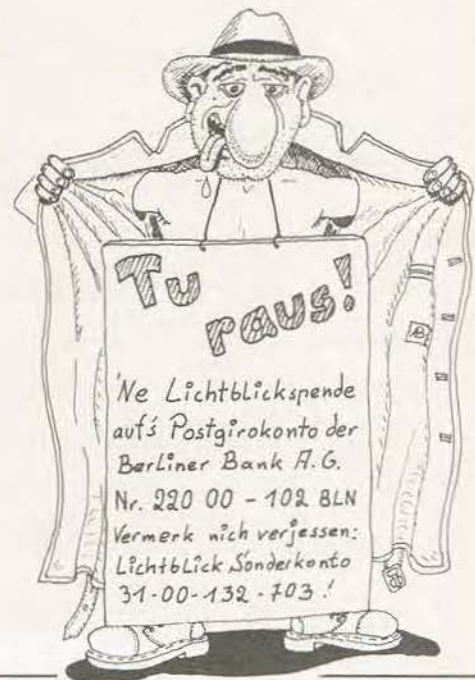 Tu
raus!
'Ne Lichtblickspende
auf's Postgirokonto der
Berliner Bank A.G.
Nr. 220 00 - 102 BLN
Vermerk nich verjessen:
Lichtblick Sonderkonto
31-00-132-703!